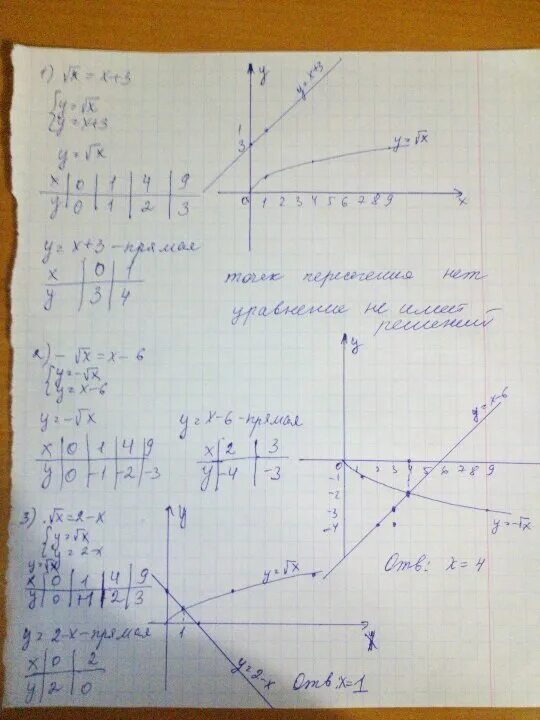 1) √x = x+3
{y=√x
{y=x+3
y=√x
x 0 1 4 9
y 0 1 2 3
y = x+3 - прямая
x 0 1
y 3 4
y
y=x+3
3
1
y=√x
0 1 2 3 4 5 6 7 8 9
x
точек пересечения нет
уравнение не имеет
решений
2) -√x = x - 6
{y=-√x
{y=x-6
y=-√x
x 0 1 4 9
y 0 -1 -2 -3
y=x-6-прямая
x 2 3
y -4 -3
y
y=x-6
0 1 2 3 4 5 6 7 8 9
-1
-2
-3
-4
y=-√x
Отв: x=4
3) √x=2-x
{y=√x
{y=2-x
y=√x
x 0 1 4 9
y 0 +1 2 3
y=2-x-прямая
x 0 2
y 2 0
y
y=√x
1
x
y=2-x
Отв: x=1